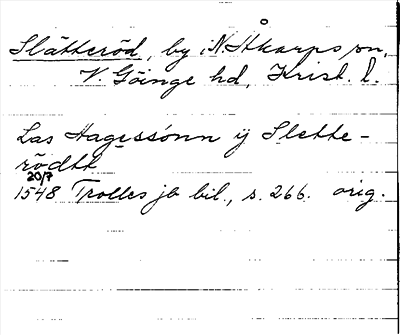 Slätteröd, by, N. Åkarps sn,
V. Göinge hd, Krist. l.
Las Hagessønn ij Slette-
rödtt
20/7
1548 Trolles jb bil., s. 266. orig.